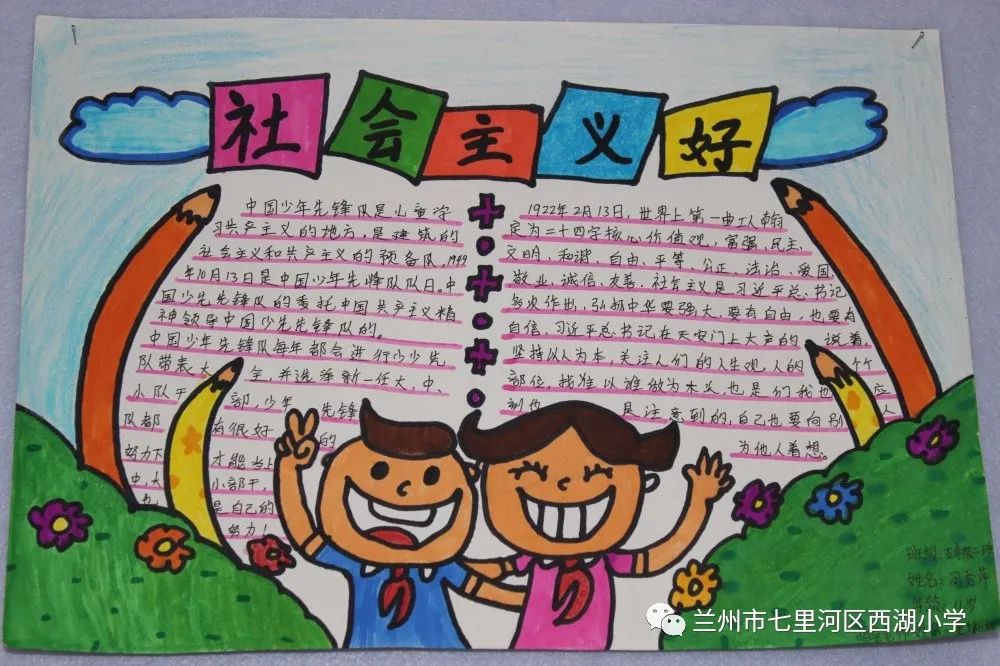 社会主义好
中国少年先锋队是儿童学
习共产主义的地方，是建筑的
社会主义和共产主义的预备队，1949
年10月13日是中国少年先烽队队日。中
国少先先锋队的委托中国共产主义精
神领导中国少先先锋队的。
中国少年先锋队每年都会进行少少先
队带表大 全，并选泽新一任大、中、
小队干 部，少年 先锋
队都 有很好 的
努力下 才能当上
中，大 小部干，
是自己的
努力！
1922年2月13日，世界上第一曲工人翰
定为二十四字核心价值观，富强，民主，
文明，和谐，自由，平等，公正，法治，爱国，
敬业，诚信，友善，社会主义是习近平总，书记
多次作出，弘扬中华要强大，要有自由，也要有
自信，习近平总书记在天安门上大声的 说着，
坚持以人为本，关注人们的人生观人的 竹
部位，找准以谁做为木头也是们我也 应
刻也 是注意到的，自己也要向别 人
为他人着想。
班级：五年级二班
姓名：闫
年龄：11岁
兰州市七里河区西湖小学